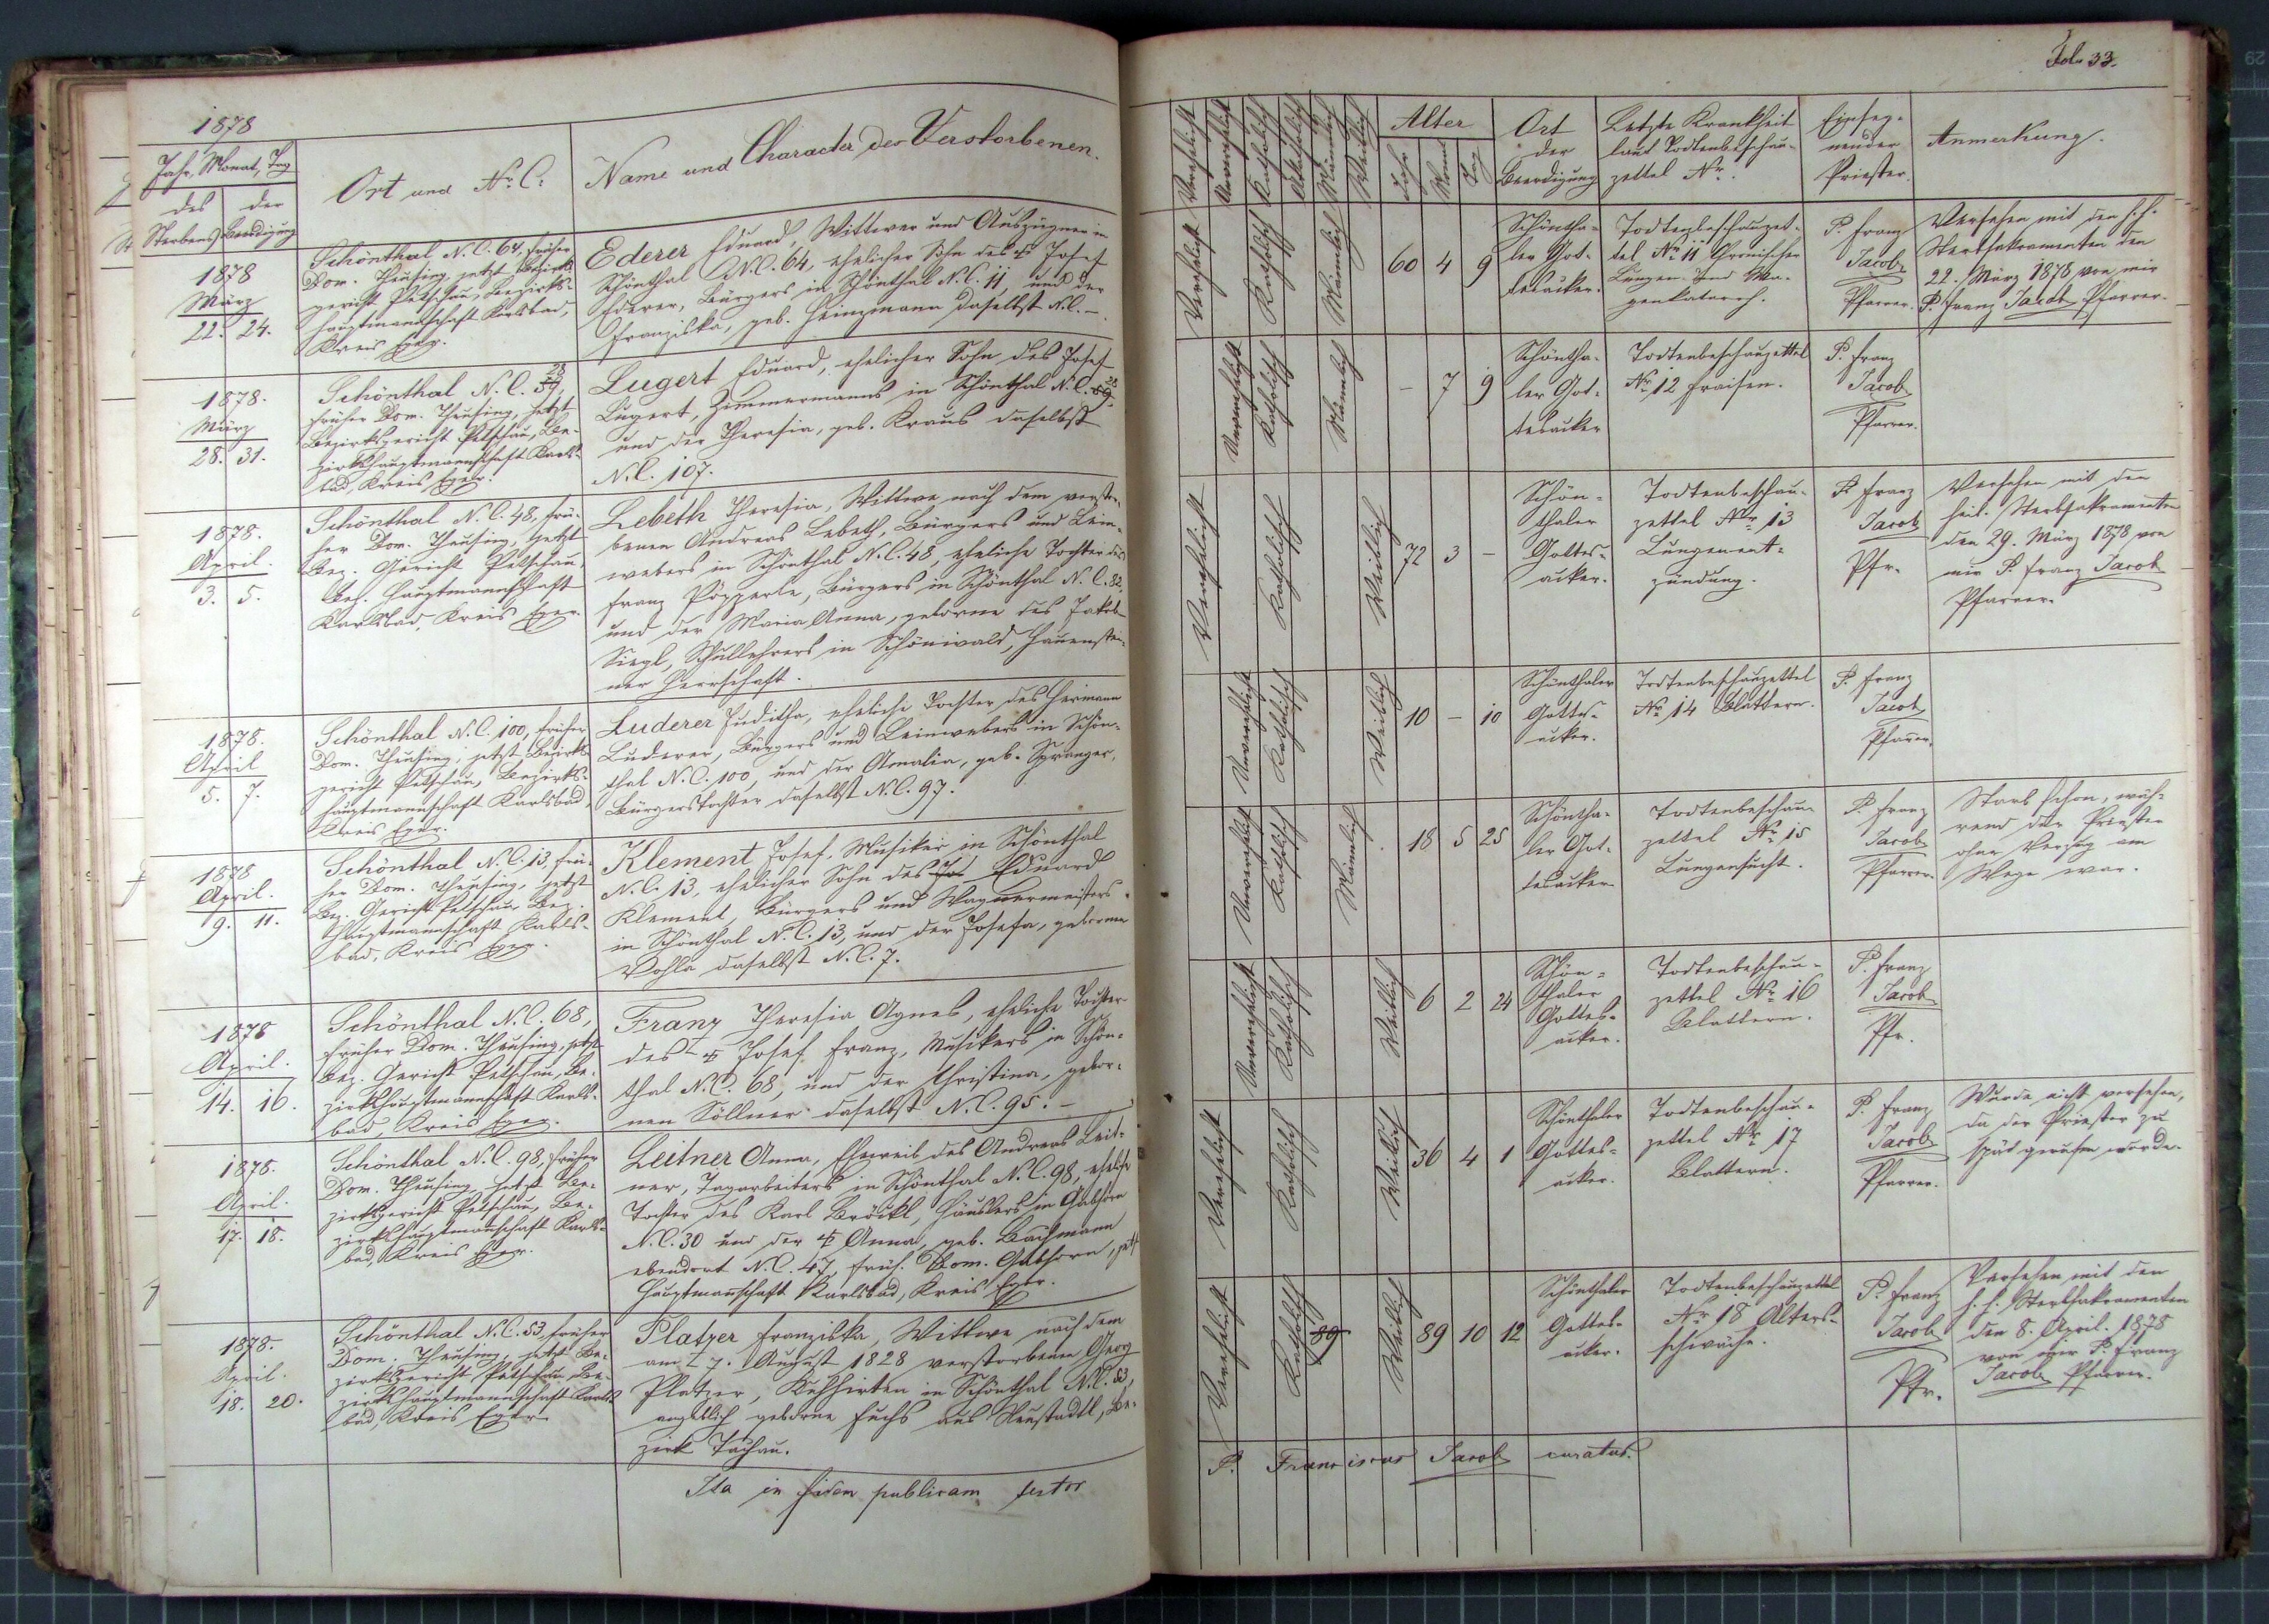 1878
Jahr, Monat, Tag
des
der
Sterbens
Beerdigung
Ort und Nr. C:
Name und Character des Verstorbenen.
1878
März
22. 24.
Schönthal N.C. 64, früher
Dom. Theusing, jetzt Bezirks-
gericht Petschau, Bezirks-
hauptmannschaft Karlsbad,
Kreis Eger.
Ederer Eduard, Wittwer und Auszügner in
Schönthal N.C. 64, ehelicher Sohn des † Josef
Ederer, Bürgers in Schönthal N.C. 11, und der
Franziska, geb. Heinzmann daselbst N.C. –
1878.
März
28. 31.
Schönthal N.C. 59, 28
früher Dom. Theusing, jetzt
Bezirksgericht Petschau, Be-
zirkshauptmannschaft Karls-
bad, Kreis Eger.
Lugert Eduard, ehelicher Sohn des Josef
Lugert, Zimmermanns in Schönthal N.C. 59, 28
und der Theresia, geb. Kraus daselbst
N.C. 107.
1878.
April.
3. 5.
Schönthal N.C. 48, frü-
her Dom. Theusing, jetzt
Bez. Gericht Petschau,
Bez. Hauptmannschaft
Karlsbad, Kreis Eger.
Lebeth Theresia, Wittwe nach dem verstor-
benen Andreas Lebeth, Bürgers und Lein-
webers in Schönthal N.C. 48, eheliche Tochter des
Franz Pöpperle, Bürgers in Schönthal N.C. 82,
und der Maria Anna, geborne des Jakob
Siegl, Schullehrers in Schönwald, Hauenstei-
ner Herrschaft.
1878.
April
5. 7.
Schönthal N.C. 100, früher
Dom. Theusing, jetzt Bezirks-
gericht Petschau, Bezirks-
hauptmannschaft Karlsbad,
Kreis Eger.
Luderer Juditha, eheliche Tochter des Hermann
Luderer, Bürgers und Leinwebers in Schön-
thal N.C. 100, und der Amalia, geb. Spranger,
Bürgerstochter daselbst N.C. 97.
1878
April.
9. 11.
Schönthal N.C. 13, frü-
her Dom. Theusing, jetzt
Bez. Gericht Petschau, Bez.
Hauptmannschaft Karls-
bad, Kreis Eger.
Klement Josef, Musiker in Schönthal
N.C. 13, ehelicher Sohn des Jos Eduard
Klement, Bürgers und Wagnermeisters
in Schönthal N.C. 13, und der Josefa, geborne
Vohla daselbst N.C. 7.
1878
April.
14. 16.
Schönthal N.C. 68,
früher Dom. Theusing, jetzt
Bez. Gericht Petschau, Be-
zirkshauptmannschaft Karls-
bad, Kreis Eger.
Franz Theresia Agnes, eheliche Tochter
des † Josef Franz, Musikers in Schön-
thal N.C. 68, und der Christina, gebor-
nen Söllner daselbst N.C. 95. –
1878.
April.
17. 18.
Schönthal N.C. 98, früher
Dom. Theusing, jetzt Be-
zirksgericht Petschau, Be-
zirkshauptmannschaft Karls-
bad, Kreis Eger.
Leitner Anna, Eheweib des Andreas Leit-
ner, Tagarbeiters in Schönthal N.C. 98, eheliche
Tochter des Karl Bröckl, Häuslers in Gabhorn
N.C. 30 und der † Anna, geb. Bachmann
ebendort N.C. 47, früh. Dom. Gabhorn, jetzt
Hauptmannschaft Karlsbad, Kreis Eger.
1878.
April.
18. 20.
Schönthal N.C. 53, früher
Dom. Theusing, jetzt Be-
zirksgericht Petschau, Be-
zirkshauptmannschaft Karls-
bad, Kreis Eger.
Platzer Franziska, Wittwe nach dem
am 7. August 1828 verstorbenen Georg
Platzer, Kuhhirten in Schönthal N.C. 53,
angeblich geborne Fuchs aus Neustadtl, Be-
zirk Tachau.
Ita in fidem publicam testor
Fol. 33.
Verehelicht
Unverehelicht
Katholisch
Akatholisch
Männlich
Weiblich
Alter
Jahr
Monat
Tag
Ort
der
Beerdigung
Letzte Krankheit
laut Todtenbeschau-
zettel Nr.
Einseg-
nender
Priester.
Anmerkung.
Verehelicht
Katholisch
Männlich
60 4 9
Schöntha-
ler Got-
tesacker.
Todtenbeschauzet-
tel Nr. 11 Chronischer
Lungen- und Ma-
genkatarrh.
P. Franz
Jacob
Pfarrer.
Versehen mit den h.h.
Sterbsakramenten den
22. März 1878 von mir
P. Franz Jacob Pfarrer.
Unverehelicht
Katholisch
Männlich
– 7 9
Schöntha-
ler Got-
tesacker
Todtenbeschauzettel
Nr. 12 Fraisen.
P. Franz
Jacob
Pfarrer.
Verehelicht
Katholisch
Weiblich
72 3 –
Schön-
thaler
Gottes-
acker.
Todtenbeschau-
zettel Nr. 13
Lungenent-
zündung.
P. Franz
Jacob
Pfr.
Versehen mit den
heil. Sterbsakramenten
den 29. März 1878 von
mir P. Franz Jacob
Pfarrer.
Unverehelicht
Katholisch
Weiblich
10 – 10
Schönthaler
Gottes-
acker.
Todtenbeschauzettel
Nr. 14 Blattern.
P. Franz
Jacob
Pfarrer.
Unverehelicht
Katholisch
Männlich
18 5 25
Schöntha-
ler Got-
tesacker
Todtenbeschau-
zettel Nr. 15
Lungensucht.
P. Franz
Jacob
Pfarrer.
Starb schon, wäh-
rend der Priester
ohne Verzug am
Wege war.
Unverehelicht
Katholisch
Weiblich
6 2 24
Schön-
thaler
Gottes-
acker.
Todtenbeschau-
zettel Nr. 16
Blattern.
P. Franz
Jacob
Pfr.
Verehelicht
Katholisch
Weiblich
36 4 1
Schönthaler
Gottes-
acker.
Todtenbeschau-
zettel Nr. 17
Blattern.
P. Franz
Jacob
Pfarrer.
Wurde nicht versehen,
da der Priester zu
spät gerufen wurde.
Verehelicht
Katholisch
89
Weiblich
89 10 12
Schönthaler
Gottes-
acker.
Todtenbeschauzettel
Nr. 18 Alters-
schwäche.
P. Franz
Jacob
Pfr.
Versehen mit den
h.h. Sterbsakramenten
den 8. April 1878
von mir P. Franz
Jacob Pfarrer.
P. Franciscus Jacob curatus.